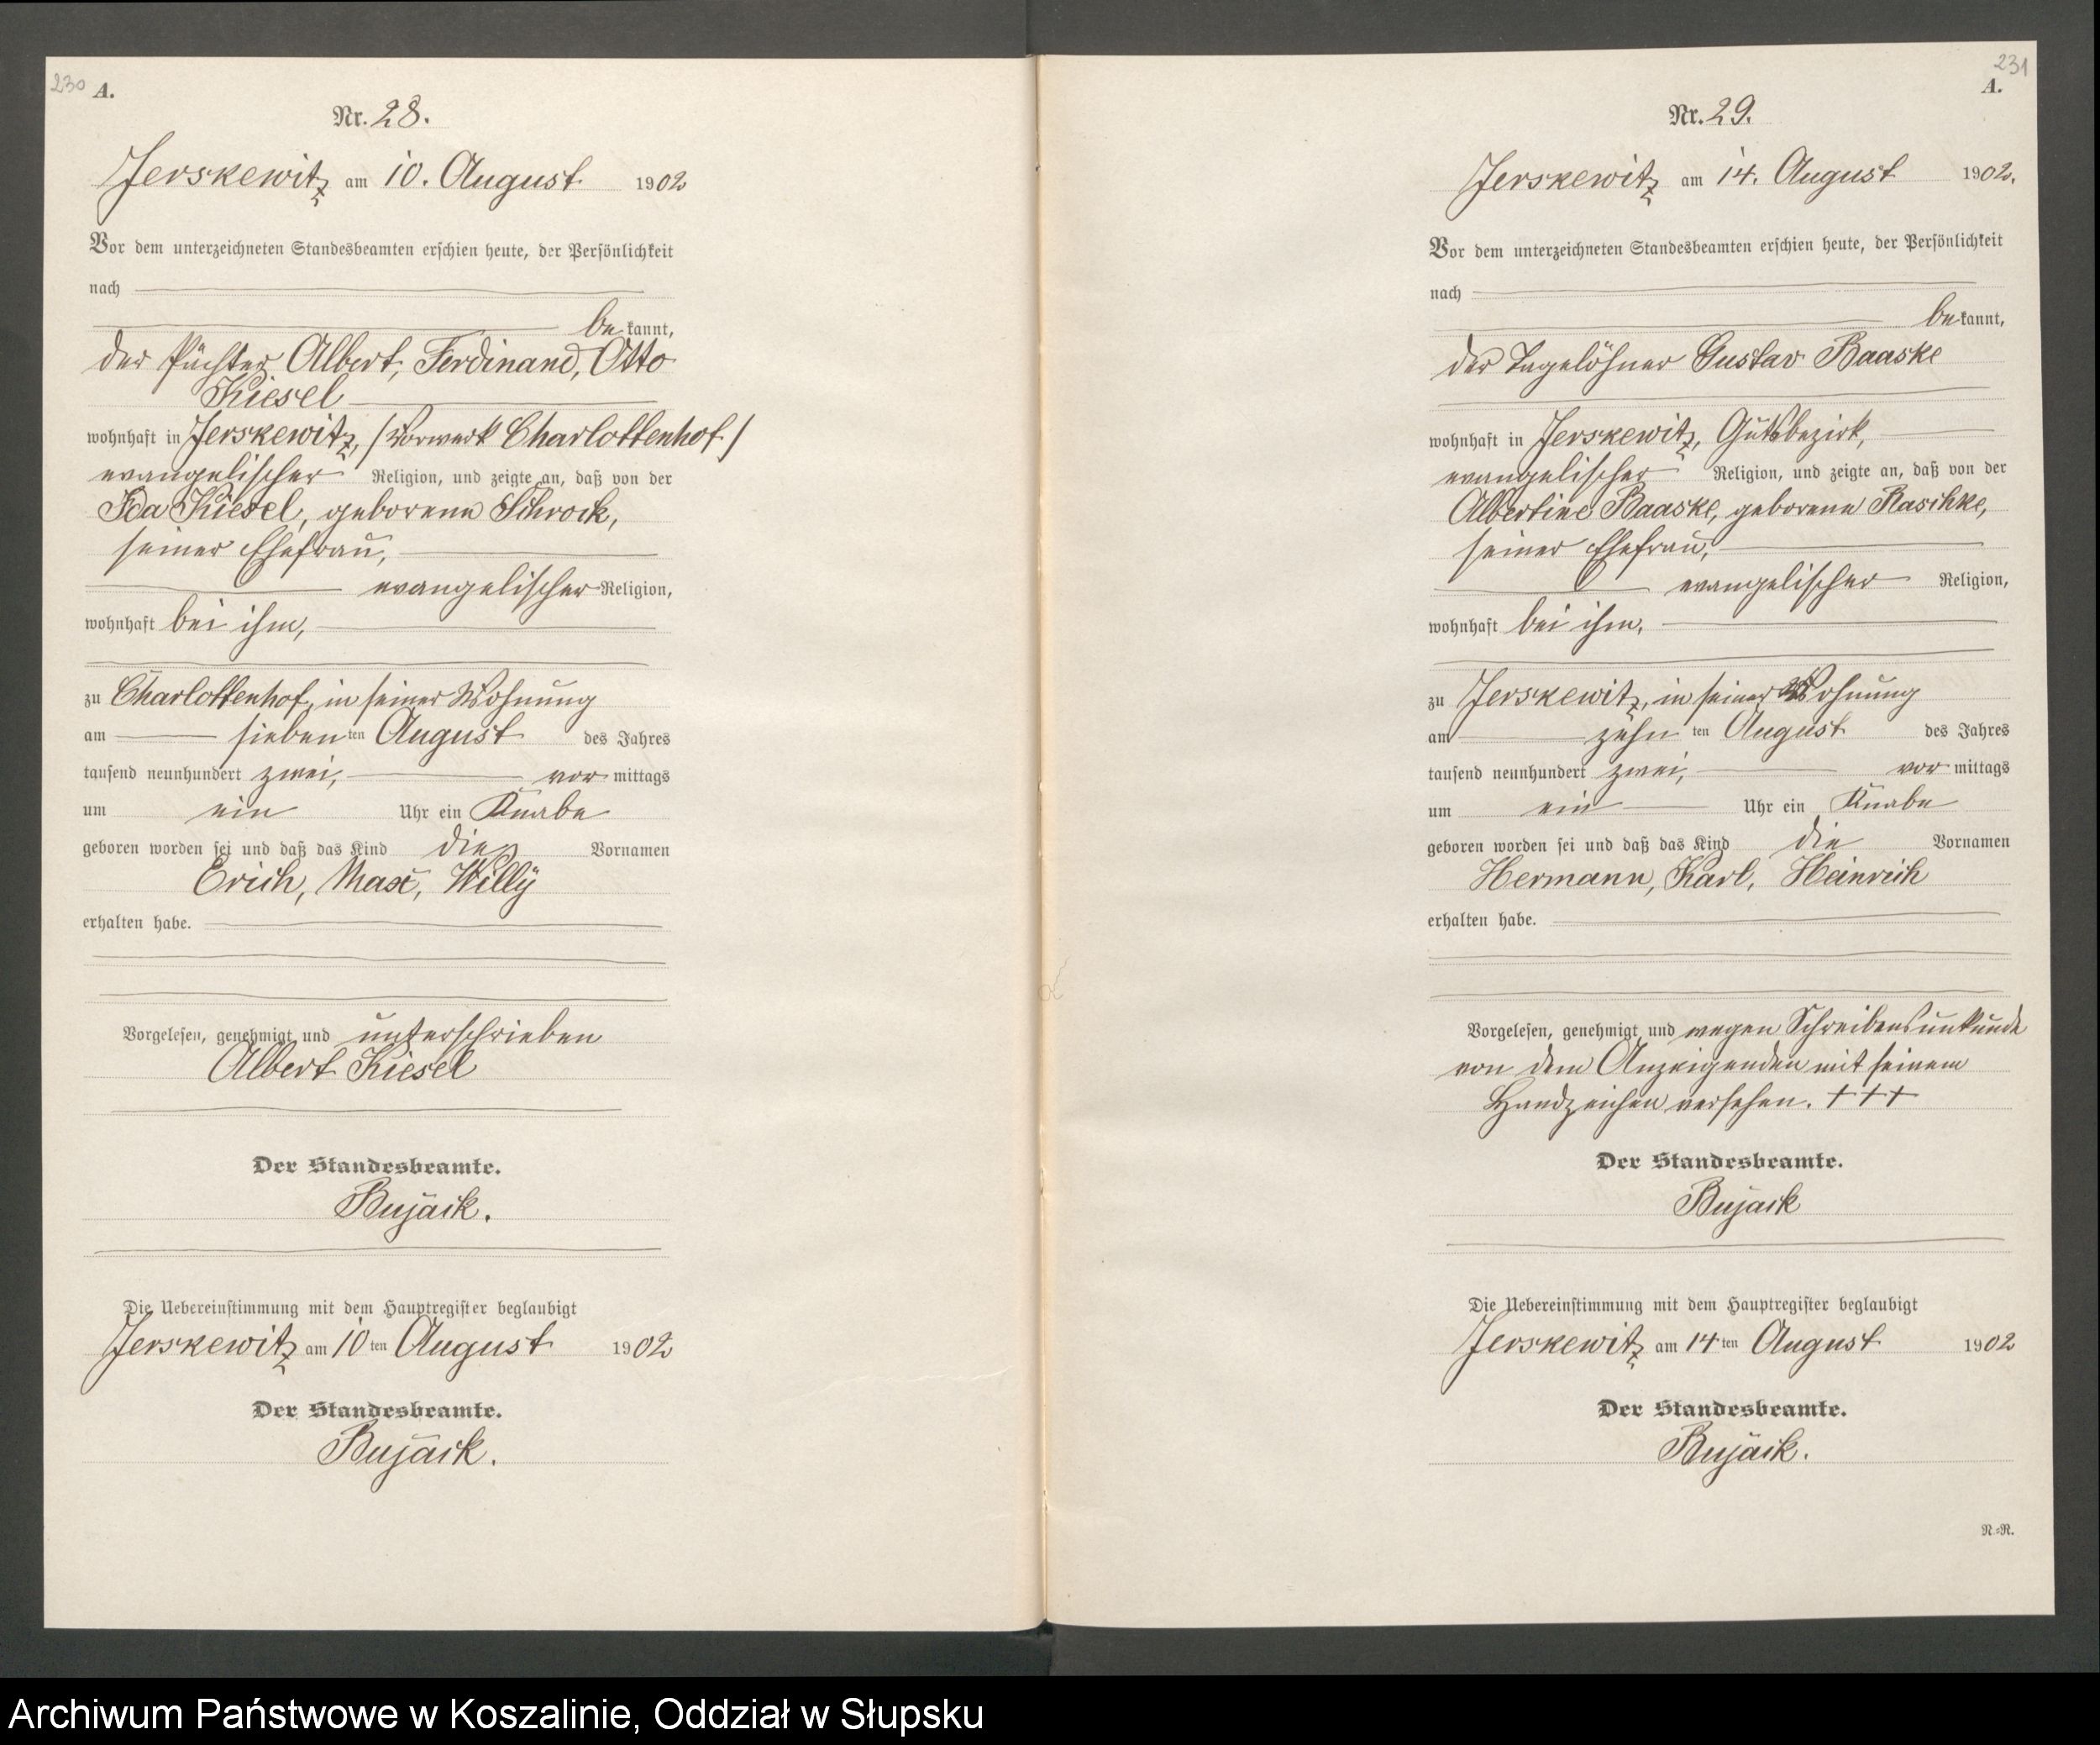 230
A.
Nr. 28.
Jerskewitz am 10. August 1902
Vor dem unterzeichneten Standesbeamten erschien heute, der Persönlichkeit
nach
be kannt,
der Pächter Albert, Ferdinand, Otto
Kiesel
wohnhaft in Jerskewitz, /Vorwerk Charlottenhof/
evangelischer Religion, und zeigte an, daß von der
Ida Kiesel, geborene Schrock,
seiner Ehefrau,
evangelischer Religion,
wohnhaft bei ihm,
zu Charlottenhof, in seiner Wohnung
am sieben ten August des Jahres
tausend neunhundert zwei, vor mittags
um ein Uhr ein Knabe
geboren worden sei und daß das Kind die Vornamen
Erich, Max, Willy
erhalten habe.
Vorgelesen, genehmigt und unterschrieben
Albert Kiesel
Der Standesbeamte.
Bujack.
Die Uebereinstimmung mit dem Hauptregister beglaubigt
Jerskewitz am 10 ten August 1902
Der Standesbeamte.
Bujack.
231
A.
Nr. 29.
Jerskewitz am 14. August 1902.
Vor dem unterzeichneten Standesbeamten erschien heute, der Persönlichkeit
nach
be kannt,
der Tagelöhner Gustav Baaske
wohnhaft in Jerskewitz, Gutsbezirk,
evangelischer Religion, und zeigte an, daß von der
Albertine Baaske, geborene Raschke,
seiner Ehefrau,
evangelischer Religion,
wohnhaft bei ihm,
zu Jerskewitz, in seiner Wohnung
am zehn ten August des Jahres
tausend neunhundert zwei, vor mittags
um ein Uhr ein Knabe
geboren worden sei und daß das Kind die Vornamen
Hermann, Karl, Heinrich
erhalten habe.
Vorgelesen, genehmigt und wegen Schreibensunkunde
von dem Anzeigenden mit seinem
Handzeichen versehen. +++
Der Standesbeamte.
Bujack
Die Uebereinstimmung mit dem Hauptregister beglaubigt
Jerskewitz am 14 ten August 1902
Der Standesbeamte.
Bujack.
N.=N.
Archiwum Państwowe w Koszalinie, Oddział w Słupsku